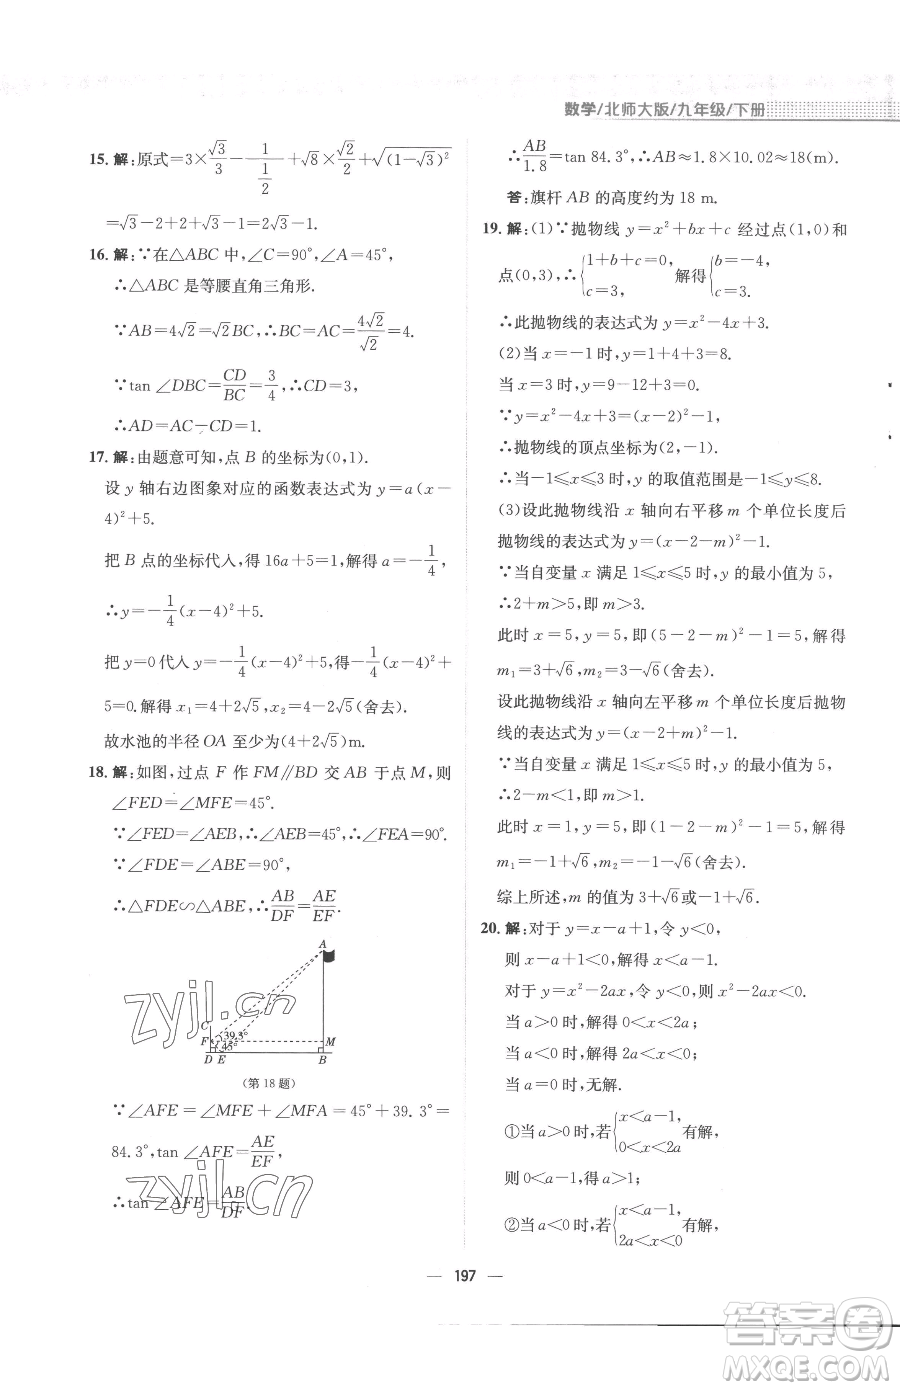 数学/北师大版/九年级/下册
15. 解:原式=3×√3/3-1/(1/2)+√8×√2/2+√((1-√3)²)
=√3-2+2+√3-1=2√3-1.
16. 解:∵在△ABC 中,∠C=90°,∠A=45°,
∴△ABC 是等腰直角三角形.
∵AB=4√2=√2BC,∴BC=AC=4√2/√2=4.
∵tan ∠DBC=CD/BC=3/4,∴CD=3,
∴AD=AC-CD=1.
17. 解:由题意可知,点 B 的坐标为(0,1).
设 y 轴右边图象对应的函数表达式为 y=a(x-
4)²+5.
把 B 点的坐标代入,得 16a+5=1,解得 a=-1/4,
∴y=-1/4(x-4)²+5.
把 y=0 代入 y=-1/4(x-4)²+5,得-1/4(x-4)²+
5=0.解得 x₁=4+2√5,x₂=4-2√5(舍去).
故水池的半径 OA 至少为(4+2√5)m.
18. 解:如图,过点 F 作 FM∥BD 交 AB 于点 M,则
∠FED=∠MFE=45°.
∵∠FED=∠AEB,∴∠AEB=45°,∴∠FEA=90°.
∵∠FDE=∠ABE=90°,
∴△FDE∽△ABE,∴AB/DF=AE/EF.
A
C
F 39.3° M
45°
D E B
(第 18 题)
∵∠AFE=∠MFE+∠MFA=45°+39.3°=
84.3°,tan ∠AFE=AE/EF,
∴tan ∠AFE=AB/DF.
∴AB/1.8=tan 84.3°,∴AB≈1.8×10.02≈18(m).
答:旗杆 AB 的高度约为 18 m.
19. 解:(1)∵抛物线 y=x²+bx+c 经过点(1,0)和
点(0,3),∴{1+b+c=0, c=3. 解得{b=-4, c=3.
∴此抛物线的表达式为 y=x²-4x+3.
(2)当 x=-1 时,y=1+4+3=8.
当 x=3 时,y=9-12+3=0.
∵y=x²-4x+3=(x-2)²-1,
∴抛物线的顶点坐标为(2,-1).
∴当-1≤x≤3 时,y 的取值范围是-1≤y≤8.
(3)设此抛物线沿 x 轴向右平移 m 个单位长度后
抛物线的表达式为 y=(x-2-m)²-1.
∵当自变量 x 满足 1≤x≤5 时,y 的最小值为 5,
∴2+m>5,即 m>3.
此时 x=5,y=5,即(5-2-m)²-1=5,解得
m₁=3+√6,m₂=3-√6(舍去).
设此抛物线沿 x 轴向左平移 m 个单位长度后抛物
线的表达式为 y=(x-2+m)²-1.
∵当自变量 x 满足 1≤x≤5 时,y 的最小值为 5,
∴2-m<1,即 m>1.
此时 x=1,y=5,即(1-2+m)²-1=5,解得
m₁=1+√6,m₂=1-√6(舍去).
综上所述,m 的值为 3+√6或1+√6.
20. 解:对于 y=x-a+1,令 y<0,
则 x-a+1<0,解得 x<a-1.
对于 y=x²-2ax,令 y<0,则 x²-2ax<0.
当 a>0 时,解得 0<x<2a;
当 a<0 时,解得 2a<x<0;
当 a=0 时,无解.
①当 a>0 时,若{x<a-1, 0<x<2a 有解,
则 0<a-1,解得 a>1;
②当 a<0 时,若{x<a-1, 2a<x<0 有解,
— 197 —
zyjl.cn
zyjl.cn
答案圈
MXQE.COM